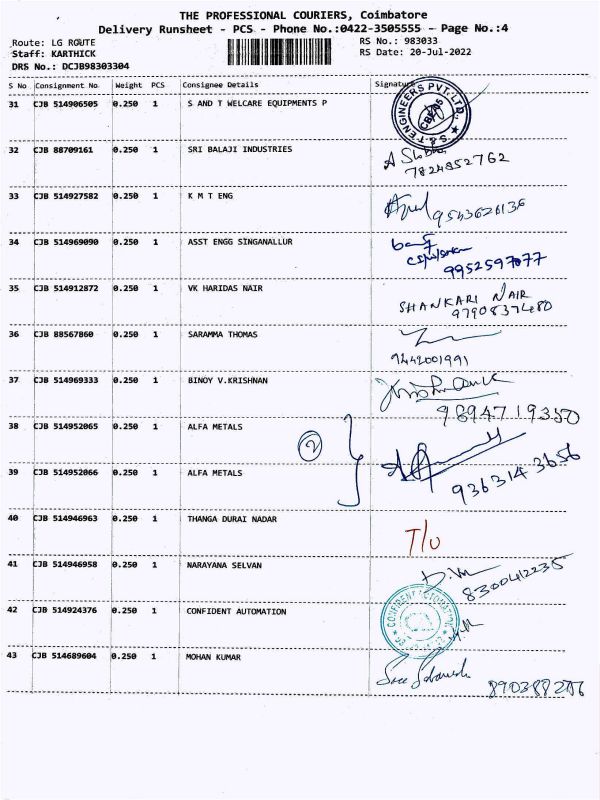 THE PROFESSIONAL COURIERS, Coimbatore
Delivery Runsheet - PCS - Phone No.:0422-3505555 - Page No.:4
Route: LG ROUTE RS No.: 983033
Staff: KARTHICK RS Date: 20-Jul-2022
DRS No.: DCJB98303304
S No Consignment No Weight PCS Consignee Details Signature
31 CJB 514906505 0.250 1 S AND T WELCARE EQUIPMENTS P
S.&.T ENGINEERS PVT.LTD.
32 CJB 88709161 0.250 1 SRI BALAJI INDUSTRIES
7824852762
33 CJB 514927582 0.250 1 K M T ENG
9543626136
34 CJB 514969090 0.250 1 ASST ENGG SINGANALLUR
9952597077
35 CJB 514912872 0.250 1 VK HARIDAS NAIR
SHANKARI NAIR
9790837480
36 CJB 88567860 0.250 1 SARAMMA THOMAS
9442001991
37 CJB 514969333 0.250 1 BINOY V.KRISHNAN
9894719350
38 CJB 514952065 0.250 1 ALFA METALS
2
39 CJB 514952066 0.250 1 ALFA METALS
9363143656
40 CJB 514946963 0.250 1 THANGA DURAI NADAR
T/U
41 CJB 514946958 0.250 1 NARAYANA SELVAN
8300412235
42 CJB 514924376 0.250 1 CONFIDENT AUTOMATION
CONFIDENT AUTOMATION
43 CJB 514689604 0.250 1 MOHAN KUMAR